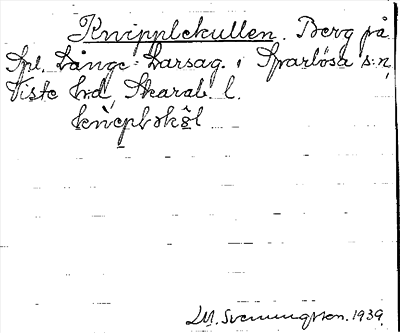 Knipplekullen. Berg på
Spl. Långe-Larsag. i Sparlösa s:n,
Viste hd, Skarab. l.
knep̀lskö̂l
Svenningsson. 1939.